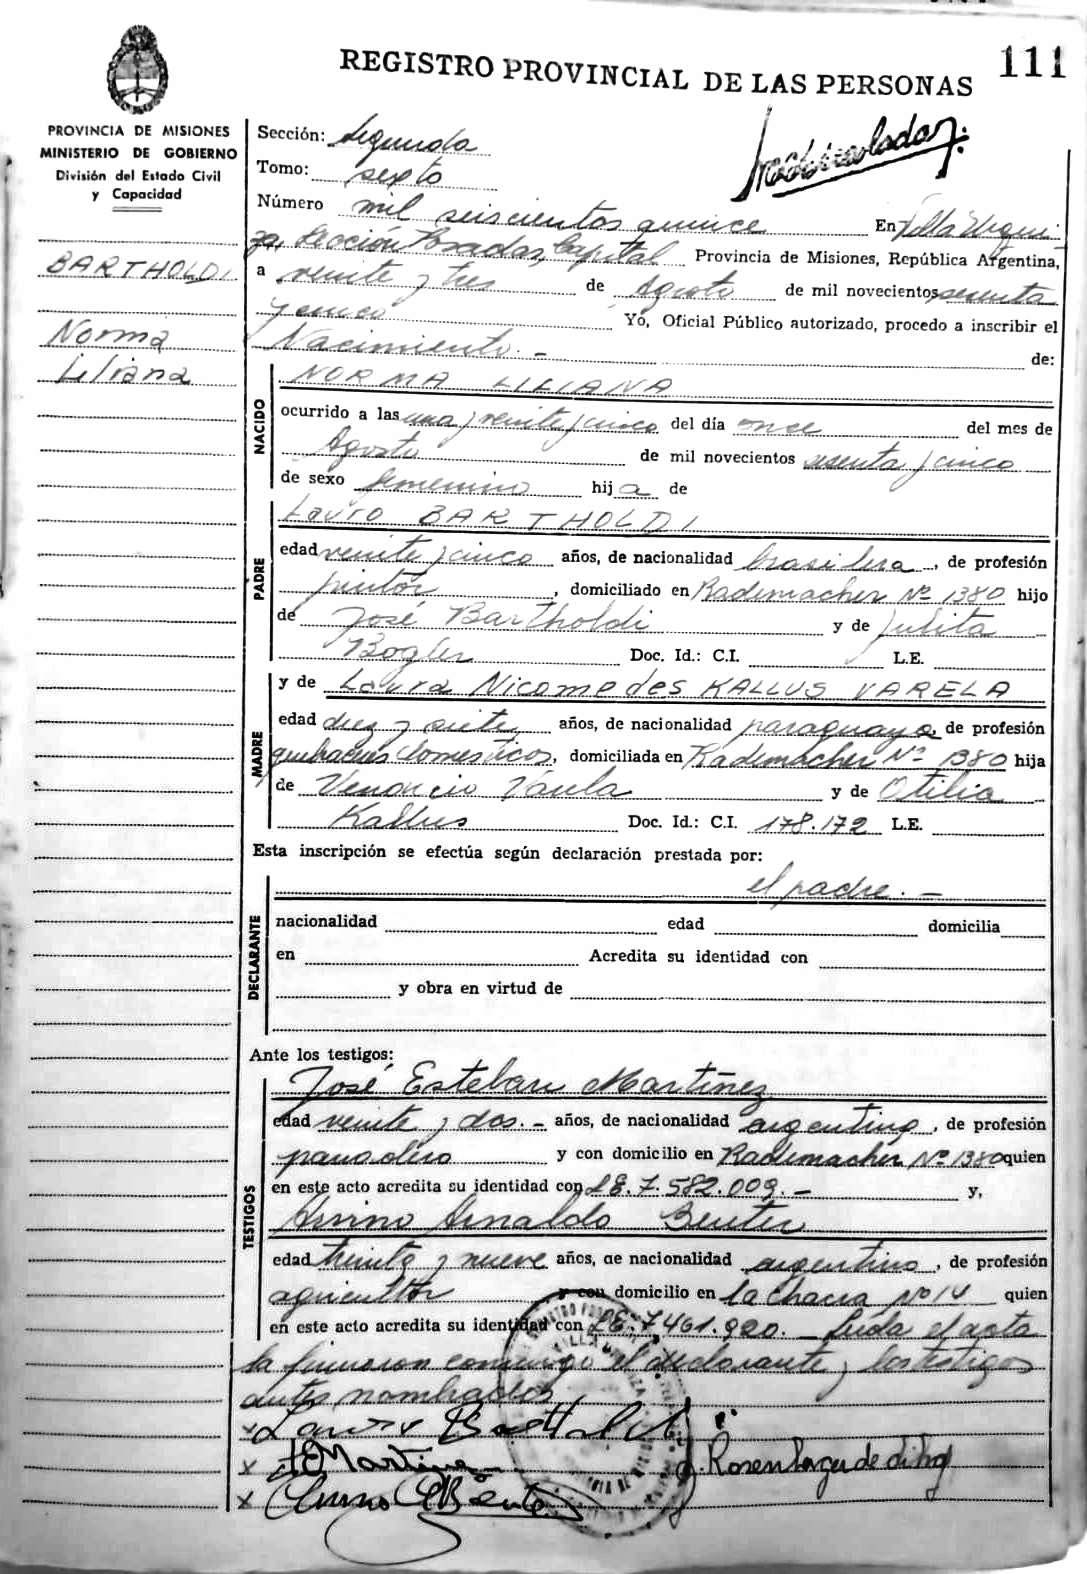 111
REGISTRO PROVINCIAL DE LAS PERSONAS
PROVINCIA DE MISIONES
MINISTERIO DE GOBIERNO
División del Estado Civil
y Capacidad
BARTHOLDI
Norma
Liliana
Sección: Segunda
Tomo: sexto
Número mil seiscientos quince En Villa Urqui-
za, Sección Posadas, Capital Provincia de Misiones, República Argentina,
a veinte y tres de Agosto de mil novecientos sesenta
y cinco Yo, Oficial Público autorizado, procedo a inscribir el
Nacimiento. - de:
NACIDO
NORMA LILIANA
ocurrido a las una y veinte y cinco del día once del mes de
Agosto de mil novecientos sesenta y cinco
de sexo femenino hija de
PADRE
Lauro BARTHOLDI
edad veinte y cinco años, de nacionalidad brasilera, de profesión
pintor, domiciliado en Rademacher Nº 1380 hijo
de José Bartholdi y de Julita
Bogler Doc. Id.: C.I. L.E.
MADRE
y de Laura Nicomedes KALLUS VARELA
edad diez y siete años, de nacionalidad paraguaya, de profesión
quehaceres domésticos, domiciliada en Rademacher Nº 1380 hija
de Venancio Varela y de Otilia
Kallus Doc. Id.: C.I. 178.172 L.E.
Esta inscripción se efectúa según declaración prestada por:
DECLARANTE
el padre. -
nacionalidad edad domicilia
en Acredita su identidad con
y obra en virtud de
Ante los testigos:
TESTIGOS
José Esteban Martínez
edad veinte y dos. - años, de nacionalidad argentino, de profesión
panadero y con domicilio en Rademacher Nº 1380 quien
en este acto acredita su identidad con L.E. 7.582.009. - y,
Arnaldo
edad treinta y nueve años, de nacionalidad argentino, de profesión
agricultor y con domicilio en la chacra Nº 14 quien
en este acto acredita su identidad con L.E. 7461.920. - Leída el acta
la firmaron conmigo el declarante y los testigos
antes nombrados